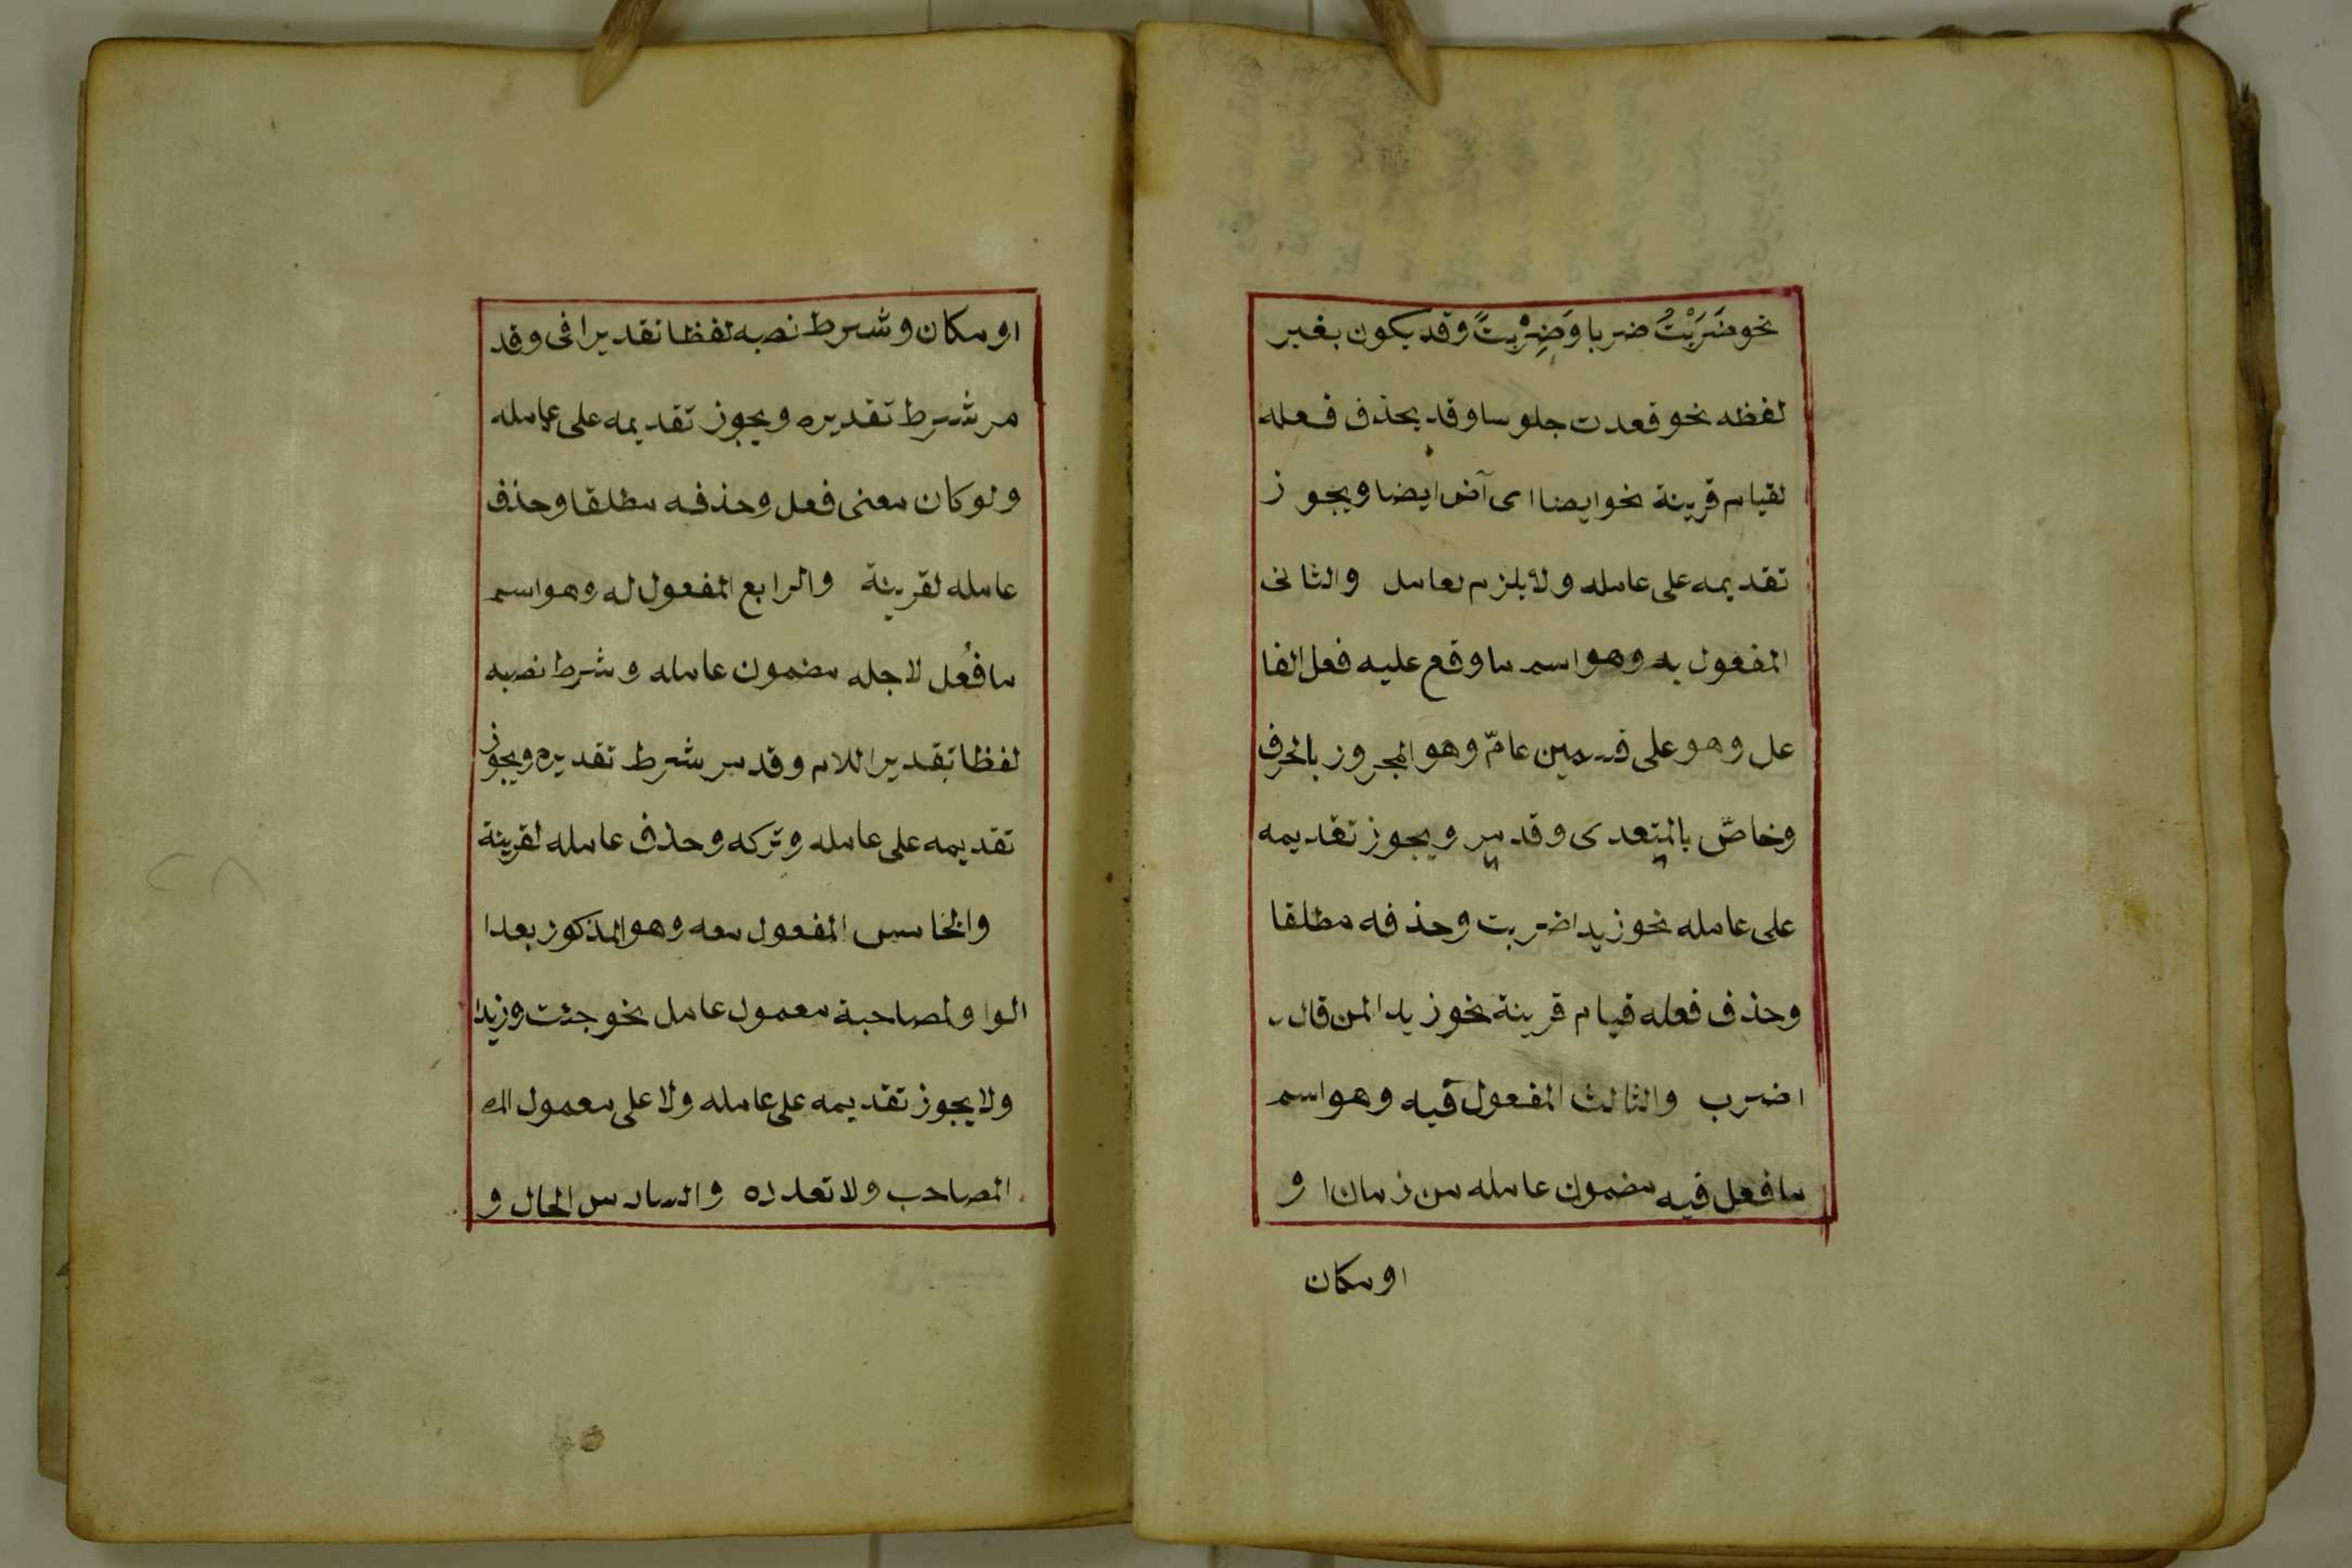 نحو ضَرَبْتُ ضربا وَضِرْبتً وقد يكون بغير
لفظه نحو قعدت جلوسا وقد يحذف فعله
لقيام قرينة نحو ايضا اى آض ايضا ويجوز
تقديمه على عامله ولا يلزم لعامل والثانى
المفعول به وهو اسم ما وقع عليه فعل الفا
عل وهو على قسمين عامّ وهو المجرور بالحرف
وخاصّ بالمتعدى وقد مر ويجوز تقديمه
على عامله نحو زيدا ضربت وحذفه مطلقا
وحذف فعله قيام قرينة نحو زيدا لمن قال
اضرب والثالث المفعول فيه وهو اسم
ما فعل فيه مضمون عامله من زمان ا و
او مكان
او مكان وشرط نصبه لفظا تقدير افى وقد
مر شرط تقديره ويجوز تقديمه على عامله
ولو كان معنى فعل وحذفه مطلقا وحذف
عامله لقرينة والرابع المفعول له وهو اسم
ما فُعل لاجله مضمون عامله وشرط نصبه
لفظا تقدير اللام وقد مر شرط تقديره ويجوز
تقديمه على عامله وتركه وحذف عامله لقرينة
والخامس المفعول معه وهو المذكور بعدا
الوا ولمصاحبة معمول عامل نحو جئت وزيدا
ولا يجوز تقديمه على عامله ولا على معمول
المصاحب ولا تعدده والسادس الحال و